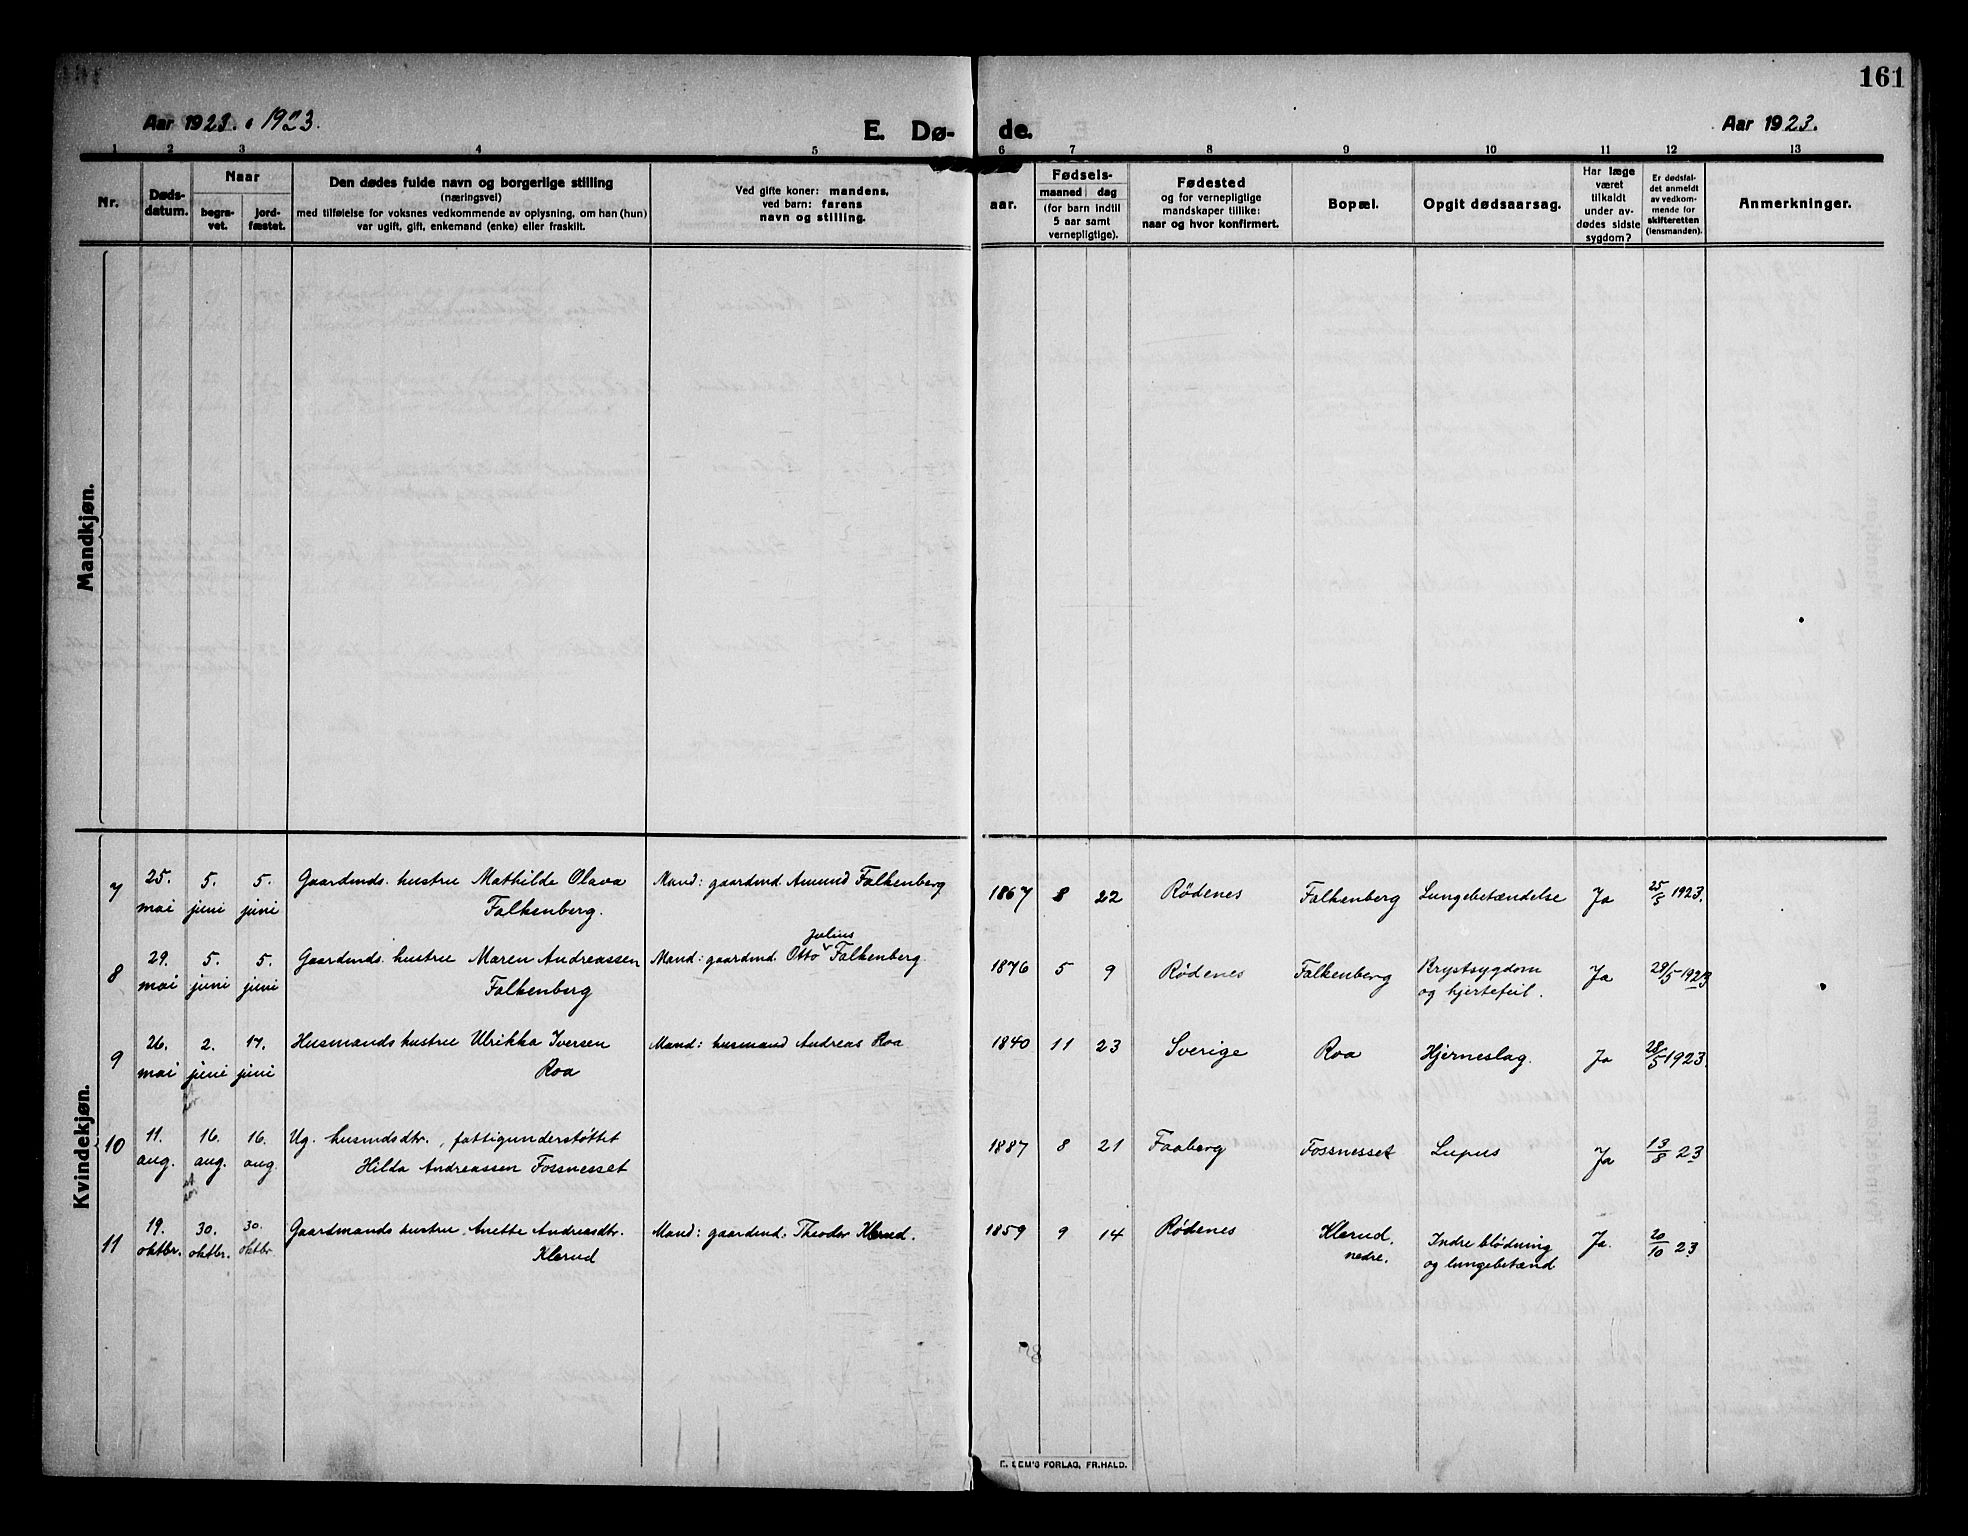 161
Aar 1923. 1923.
E. Dø-
de.
Aar 1923.
1 2 3 4 5 6 7 8 9 10 11 12 13
Nr.
Døds-
datum.
Naar
begra-
vet.
jord-
fæstet.
Den dødes fulde navn og borgerlige stilling
(næringsvei)
med tilføielse for voksnes vedkommende av oplysning, om han (hun)
var ugift, gift, enkemand (enke) eller fraskilt.
Ved gifte koner: mandens,
ved barn: farens
navn og stilling.
aar.
Fødsels-
maaned dag
(for barn indtil
5 aar samt
vernepligtige).
Fødested
og for vernepligtige
mandskaper tillike:
naar og hvor konfirmert.
Bopæl.
Opgit dødsaarsag.
Har læge
været
tilkaldt
under av-
dødes sidste
sygdom?
Er dødsfal-
det anmeldt
av vedkom-
mende for
skifteretten
(lensmanden).
Anmerkninger.
Mandkjøn.
Kvindekjøn.
7 25. mai 5. juni 5. juni Gaardmds. hustru Mathilde Olava Mand: gaardmd. Amund Falkenberg 1867 8 22 Rødenes Falkenberg Lungebetændelse Ja 25/5 1923.
Falkenberg.
8 29. mai 5. juni 5. juni Gaardmds. hustru Maren Andreassen Mand: gaardmd. Otto Julius Falkenberg. 1876 5 9 Rødenes Falkenberg Brystsygdom Ja 29/5 1923
Falkenberg og hjertefeil.
9 26. mai 2. juni 17. juni Husmands hustru Ulrikka Iversen Mand: husmand Andreas Roa 1840 11 23 Sverige Roa Hjerneslag. Ja 28/5 1923.
Roa
10 11. aug. 16. aug. 16. aug. Ug. husmdsdtr., fattigunderstøttet 1887 8 21 Faaberg Fossnesset Lupus Ja 13/8 23
Hilda Andreassen Fossnesset
11 19. oktbr. 30. oktbr. 30. oktbr. Gaardmands hustru Anette Andreasdtr. Mand: gaardmd. Theodor Klerud. 1859 9 14 Rødenes Klerud, nedre. Indre blødning Ja. 20/10 23
Klerud og lungebetænd
E. SEM'S FORLAG, FR.HALD.